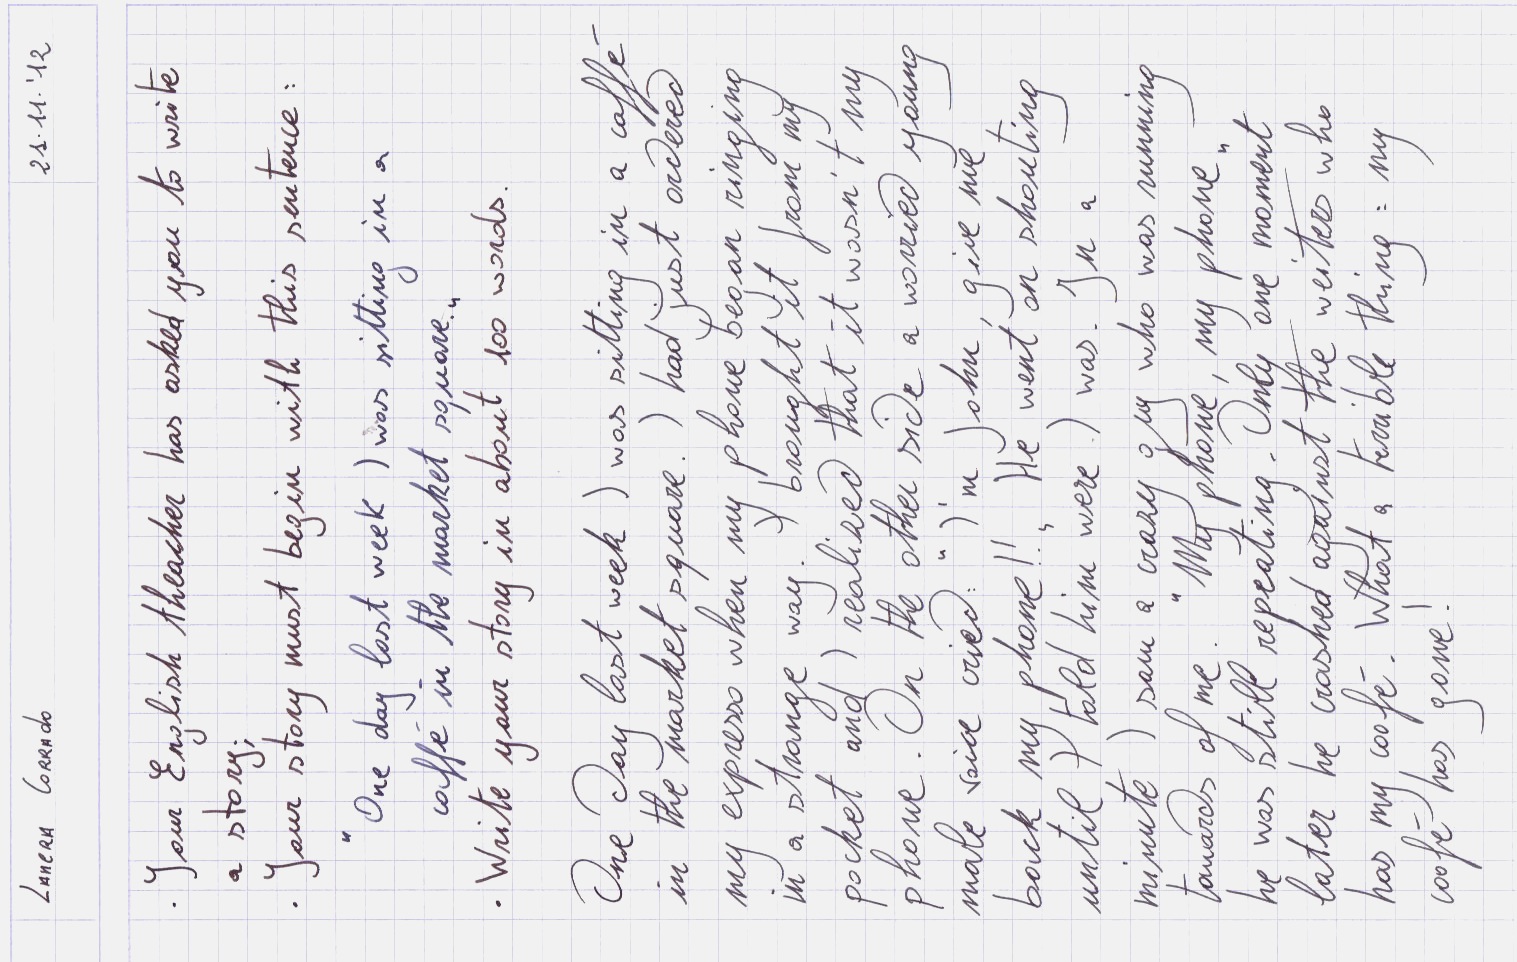 LAMERA CORRADO 21.11.'12
• Your English theacher has asked you to write
a story;
• Your story must begin with this sentence:
"One day last week I was sitting in a
caffé in the market square."
• Write your story in about 100 words.
One day last week I was sitting in a caffé
in the market square. I had just ordered
my expresso when my phone began ringing
in a strange way. I brought it from my
pocket and I realised that it wasn't my
phone. On the other side a worried young
male voice cried: "I'm John, give me
back my phone!!" He went on shouting
until I told him were I was. In a
minute I saw a crazy guy who was running
towards of me. "My phone, my phone"
he was still repeating. Only one moment
later he crashed against the weiters who
has my coofé. What a terrible thing: my
coofé has gone!